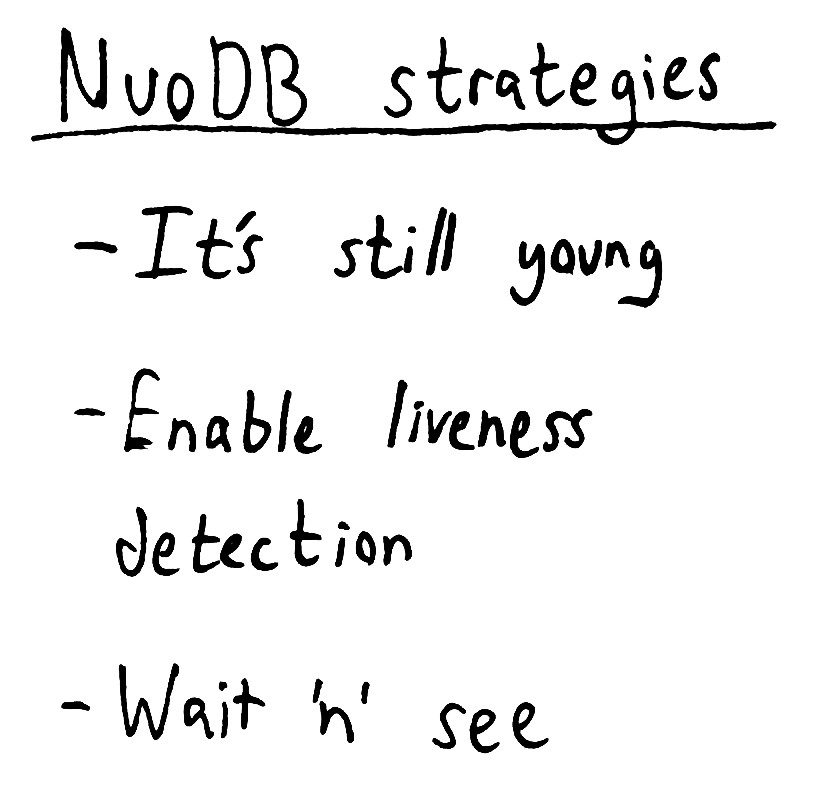 NuoDB strategies
- It's still young
- Enable liveness
detection
- Wait 'n' see